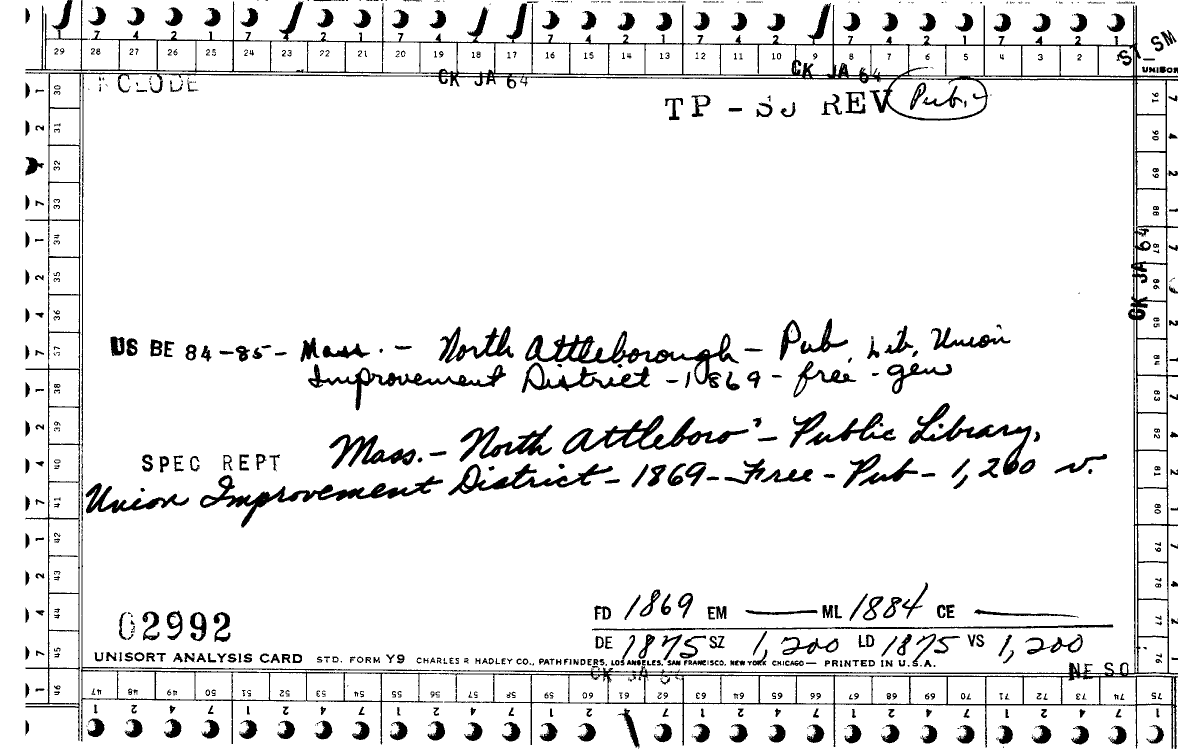 7 4 2 1 7 4 2 1 7 4 2 1 7 4 2 1 7 4 2 1 7 4 2 1
29 28 27 26 25 24 23 22 21 20 19 18 17 16 15 14 13 12 11 10 9 8 7 6 5 4 3 2
ST SM
UNISOR
CK JA 64
CK JA 64
CLUDE
TP - SJ REV Pub.
30 31 32 33 34 35 36 37 38 39 40 41 42 43 44 45 46
91 90 89 88 87 86 85 84 83 82 81 80 79 78 77 76 75
CK JA 64
US BE 84-85 - Mass. - North Attleborough - Pub. Lib. Union
Improvement District - 1869 - free - gen
Mass. - North Attleboro' - Public Library,
SPEC REPT
Union Improvement District - 1869 - Free - Pub - 1,200 v.
02992
FD 1869 EM — ML 1884 CE —
DE 1875 SZ 1,200 LD 1875 VS 1,200
UNISORT ANALYSIS CARD STD. FORM Y9 CHARLES R HADLEY CO., PATHFINDERS, LOS ANGELES, SAN FRANCISCO, NEW YORK CHICAGO — PRINTED IN U.S.A.
CK JA 64
NE SO
47 48 49 50 51 52 53 54 55 56 57 58 59 60 61 62 63 64 65 66 67 68 69 70 71 72 73 74 75
1 2 4 7 1 2 4 7 1 2 4 7 1 2 4 7 1 2 4 7 1 2 4 7 1 2 4 7 1